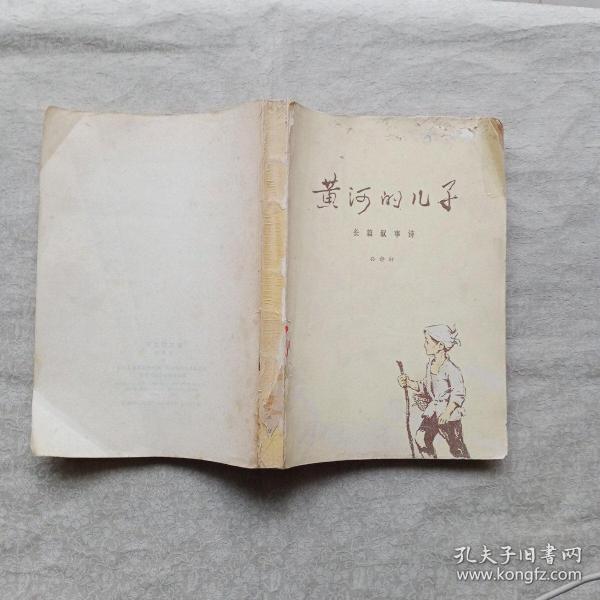 黄河的儿子
长篇叙事诗
孔夫子旧書网
www.kongfz.com